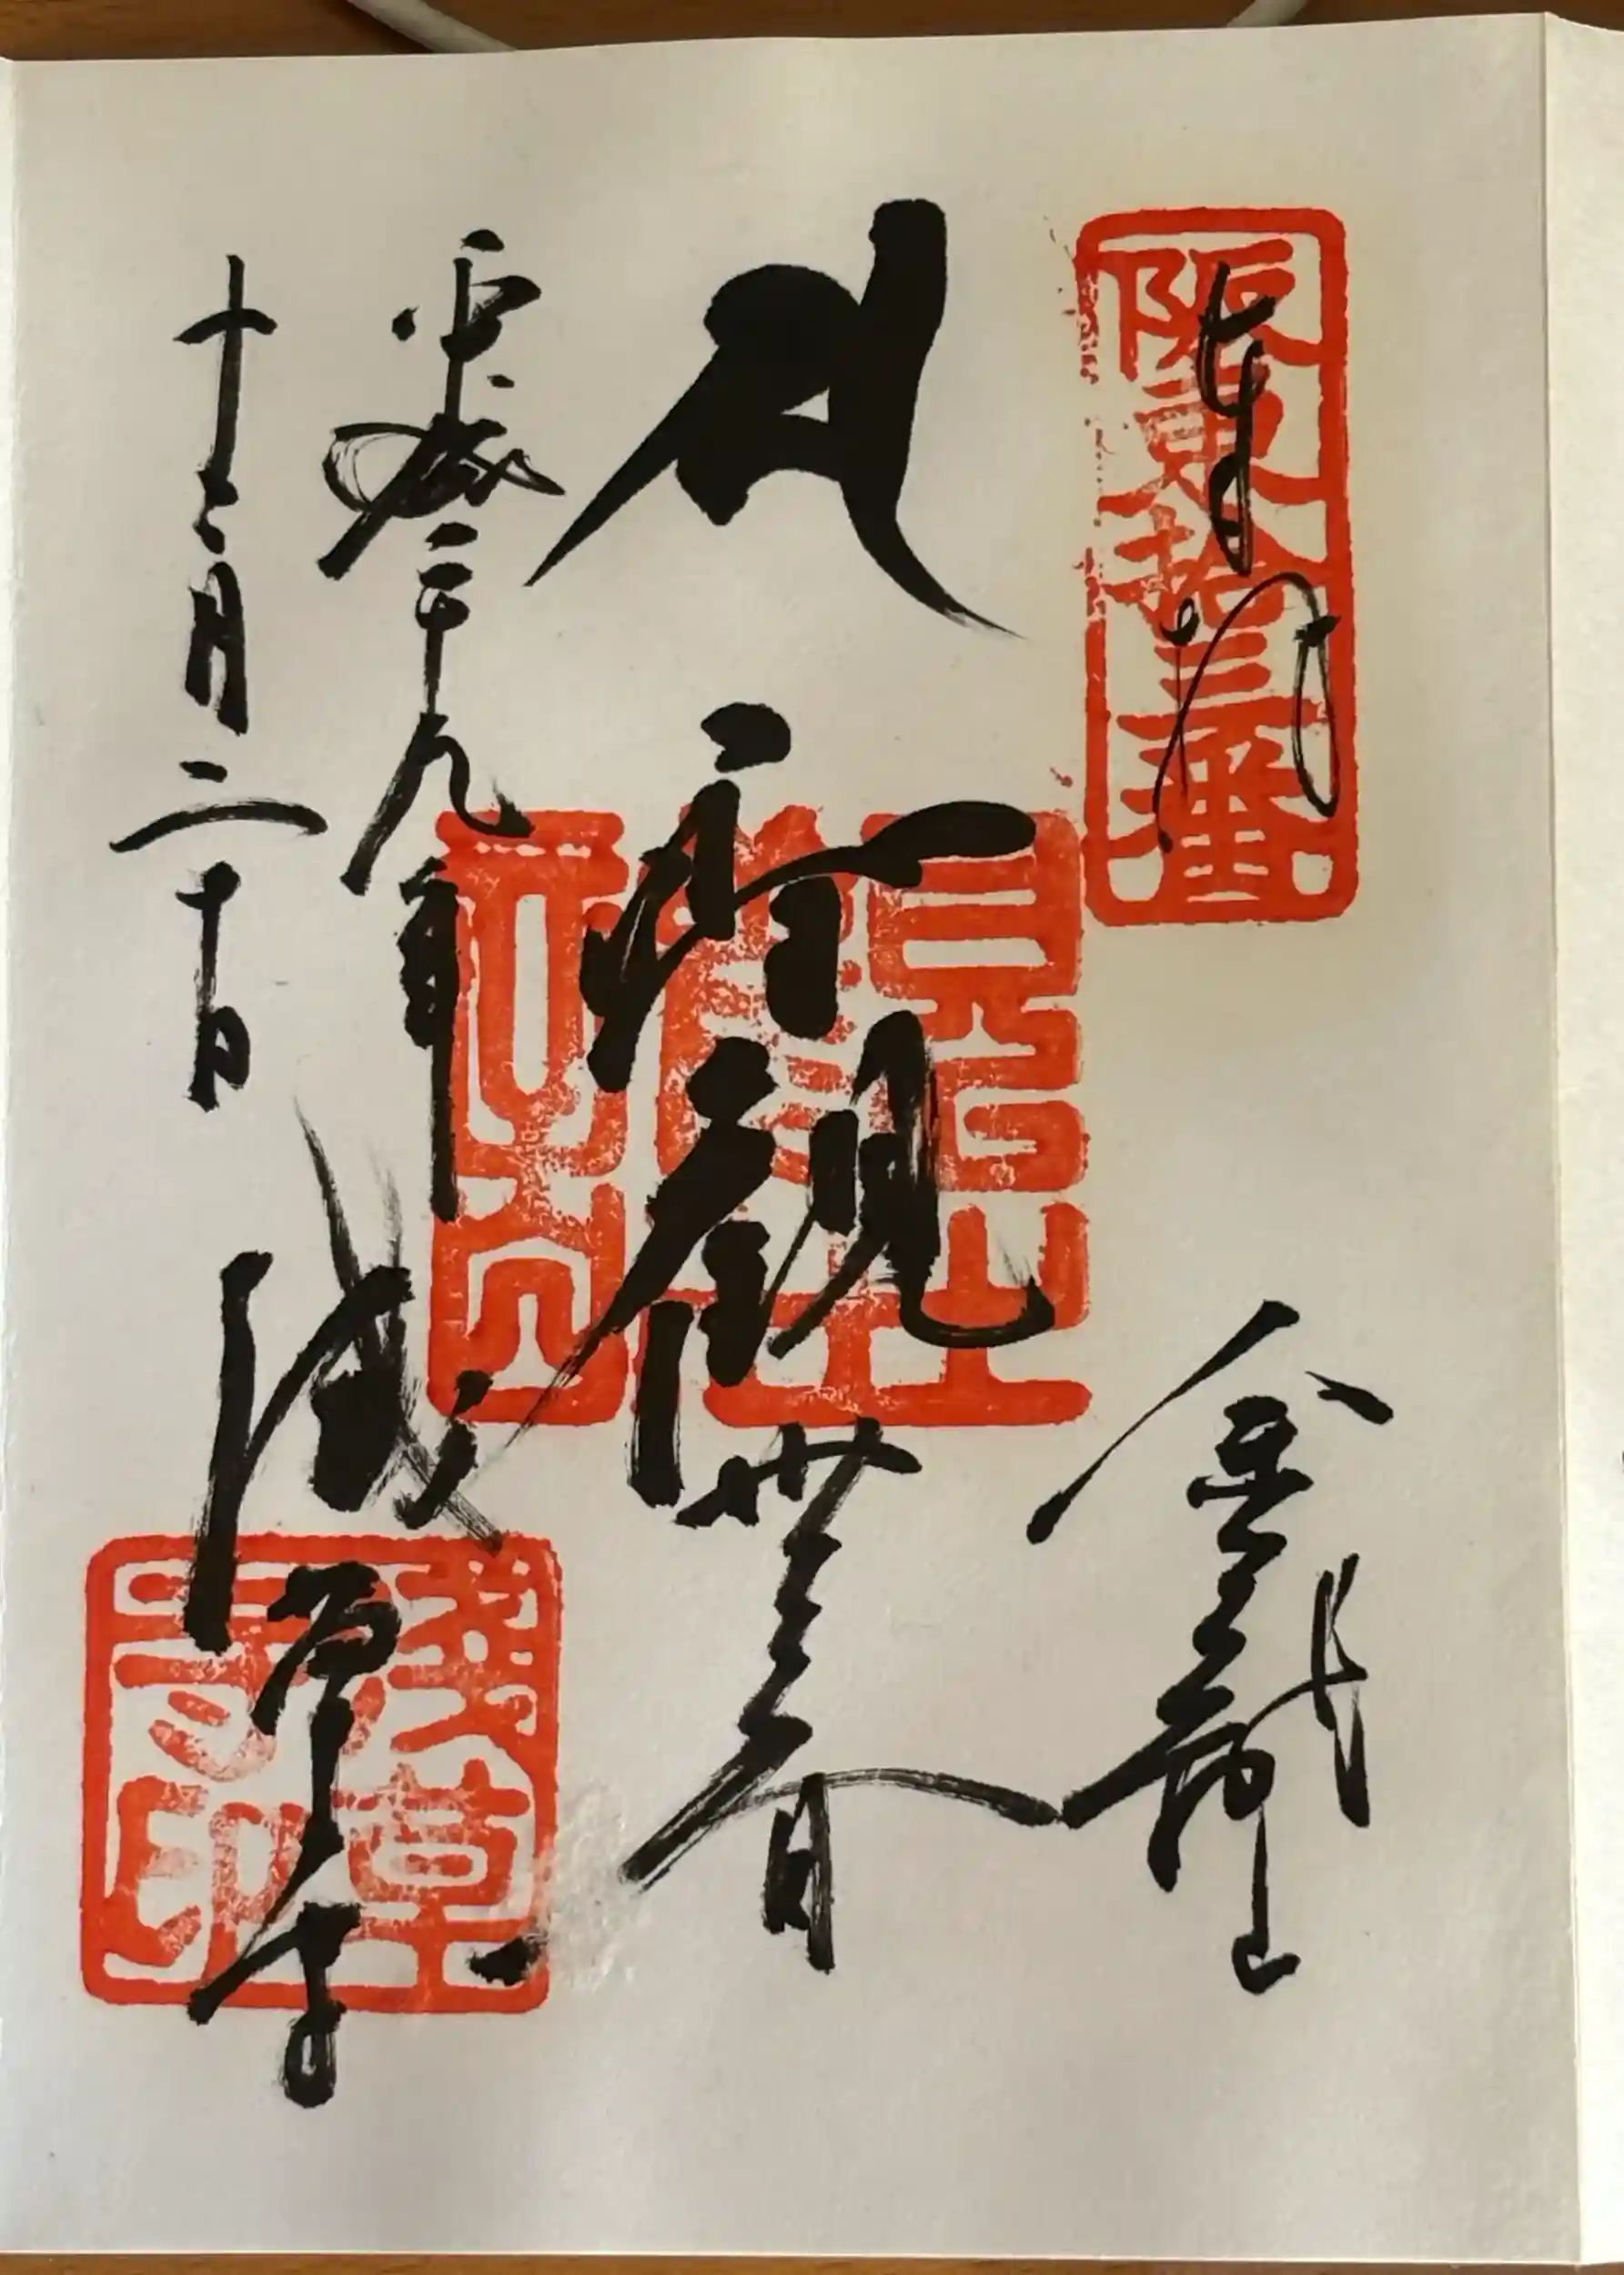 阪東拾三番
奉拝
金龍山
聖観世音
平成二十九年
十二月二十日
浅草寺
淺草寺印